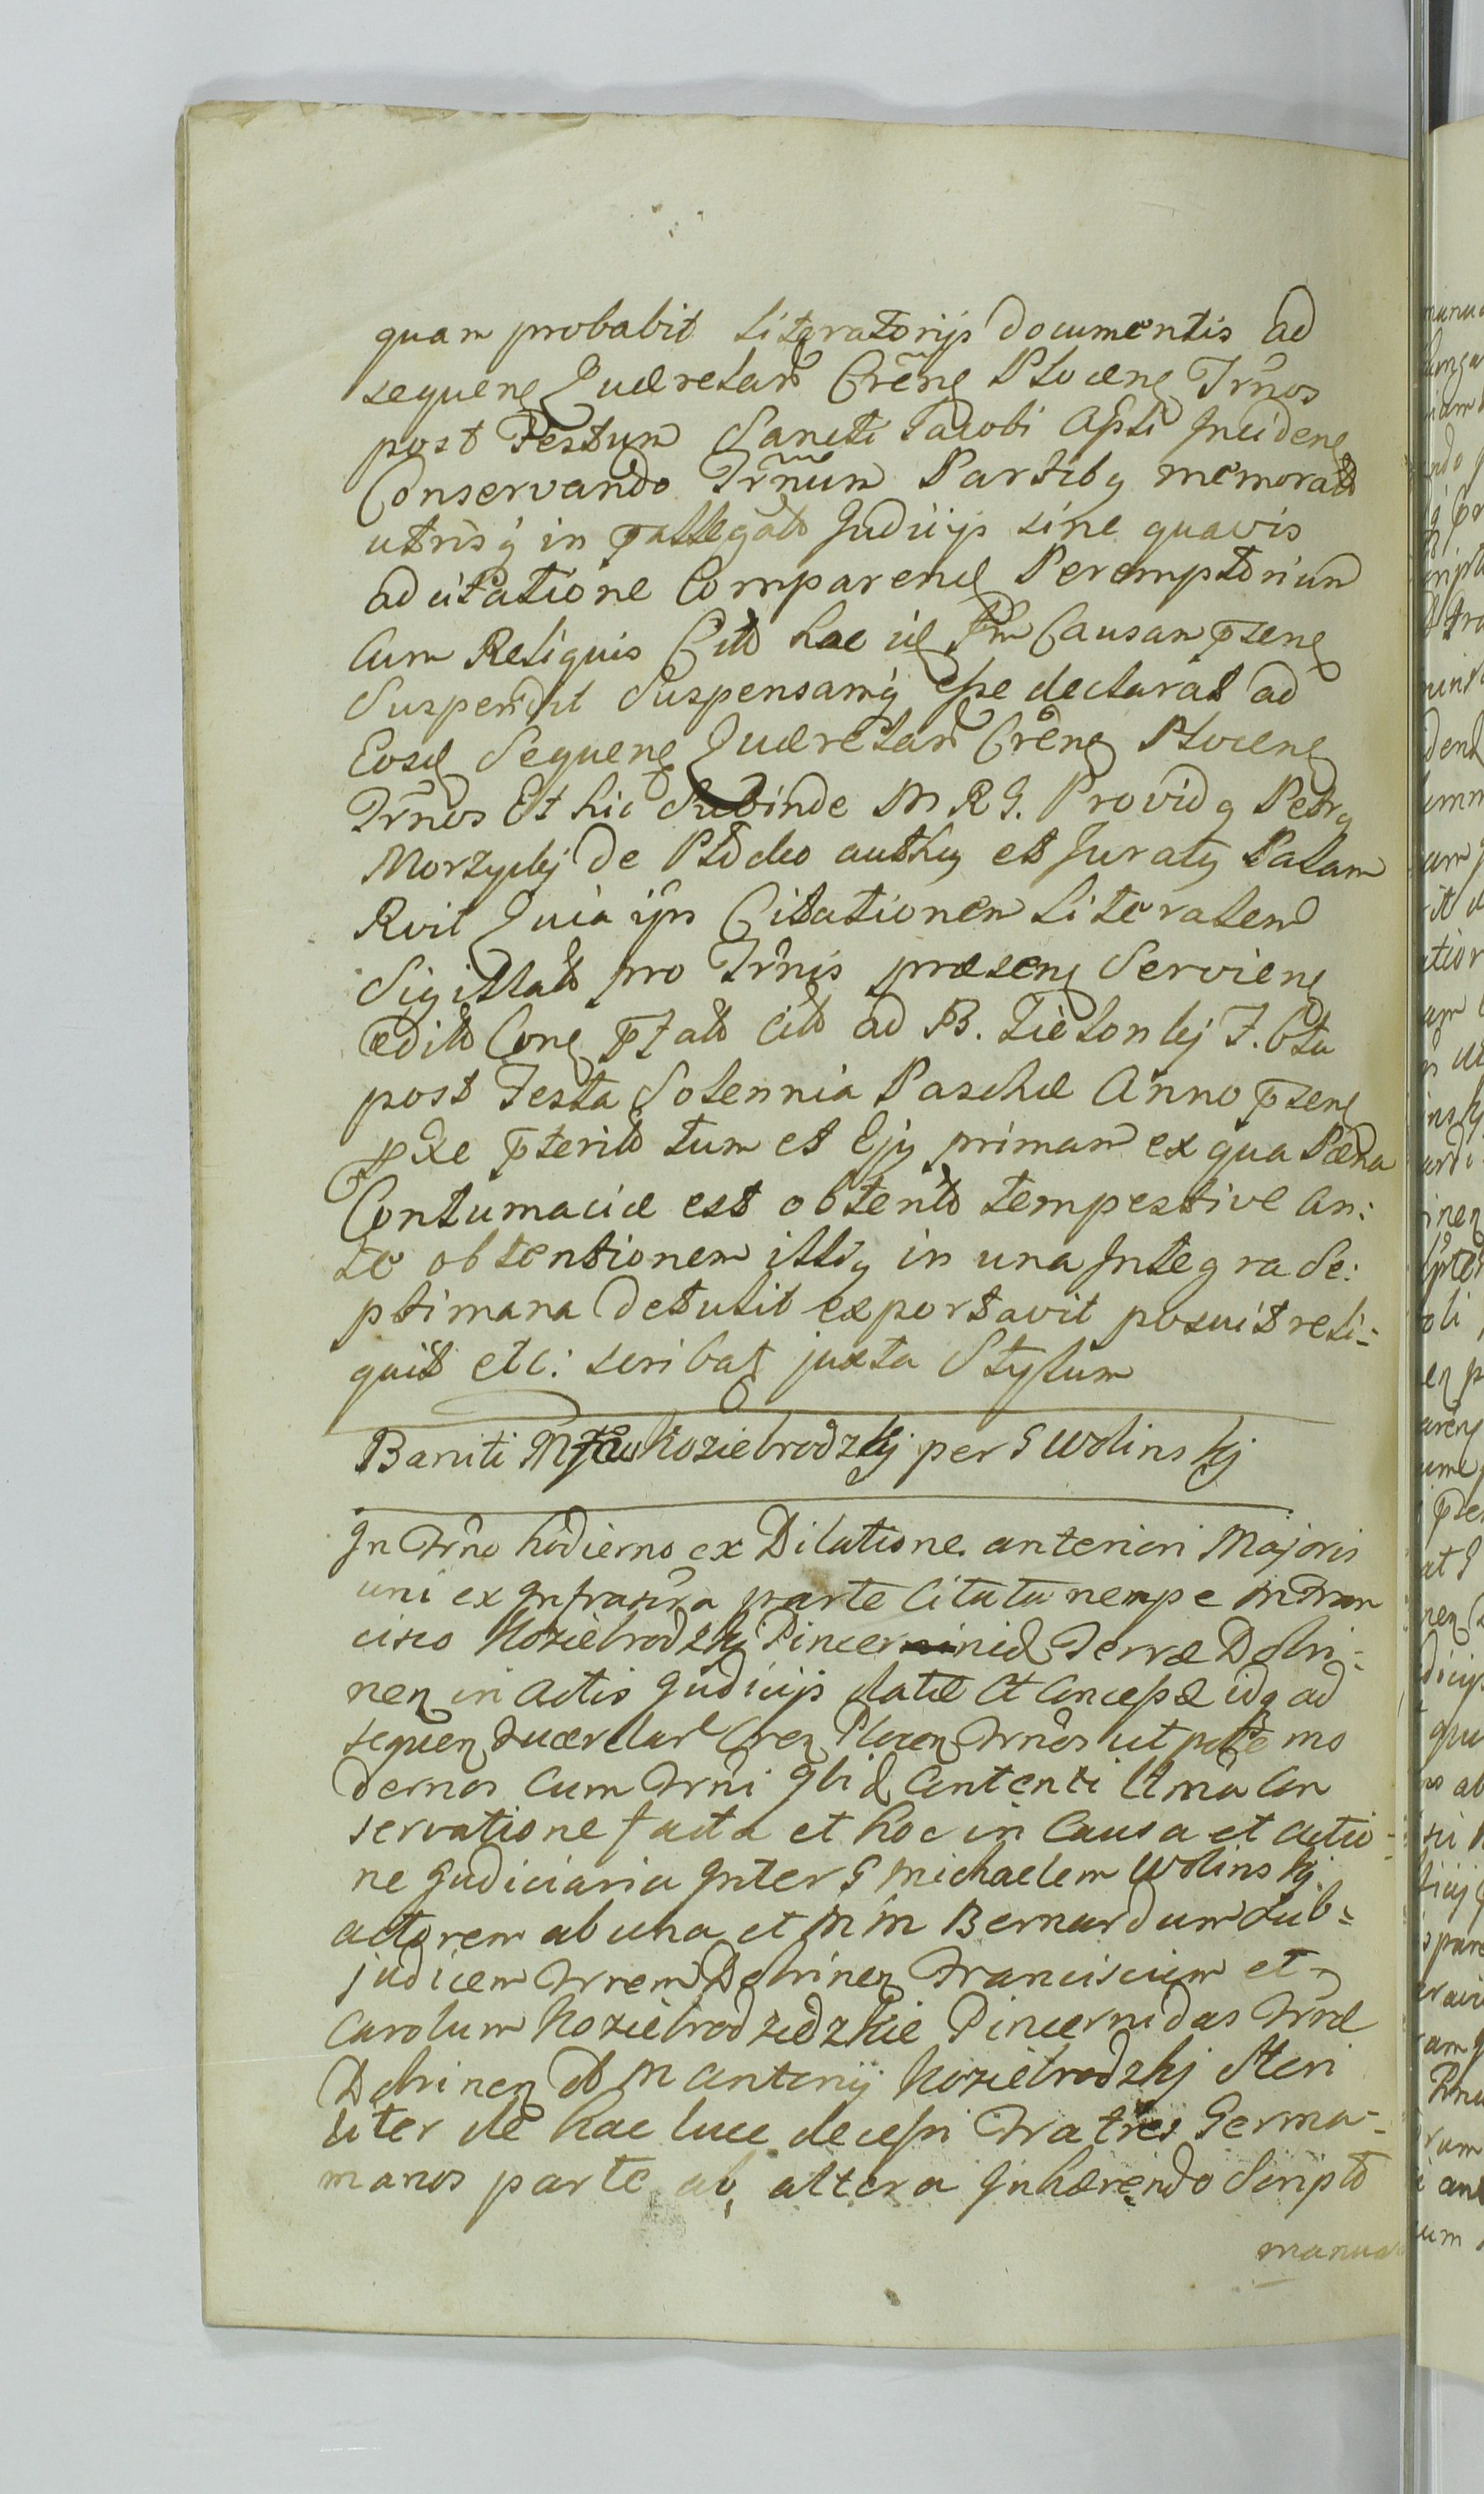 quam probabit Literatorijs documentis ad
sequen Quærelar Cren Plocen Trnos
post Festum Sancti Jacobi Apsti Inciden
Conservando Trnum Partibq memorat
utrisq in pallegat Judicijs sine quavis
adcitatione Comparend Peremptorium
Cum Reliquis Citt hac
Suspendit Suspensamq esse declarat ad
Eosd Sequen Quærelar Cren Plocen
Trnos Et hic Subinde M R G. Providq Petrq
Morzyckj de Plocko authq et Juratq Palam
Rvit Quia ips Citationem Literalem
Sigillat pro Trnis præsen Servien
edit Con ptat citt ad B. Zielonkj F.
post Festa Solennia Paschæ Anno psen
pterit tum et Ejq primam ex qua Pæna
Contumaciæ est obtent tempestive an:
te obtentionem illiq in una Integra Se:
ptimana detulit exportavit posuit reli-
quit etc: scribat juxta Stylum
Baniti Koziebrodzkj per G Wolinskj
In Trno hodierno ex Dilatione anteriori Majoris
uni ex Infrascr parte Citata nempe M Fran
cisco Koziebrodzkj Pincernid Terræ Dobri-
nen in Actis Judicijs datæ et Concepæ idq ad
sequen Quærelar Cren Plocen Trnos ut pote mo
dernos Cum Trni Ibid Contenti Con
servatione facta et hoc in Causa et actio-
ne Judiciaria Inter G Michaelem Wolinskj
actorem ab una et M M Bernardum Sub-
judicem Trrem Dobrinen Franciscum et
Carolum Koziebrodzkie Pincernidas Trræ
Dobrinen et M Antonij Koziebrodzkj Steri
liter de hac luce decessi Fratres Germa-
manos parte ab altera Inhærendo Script
manua